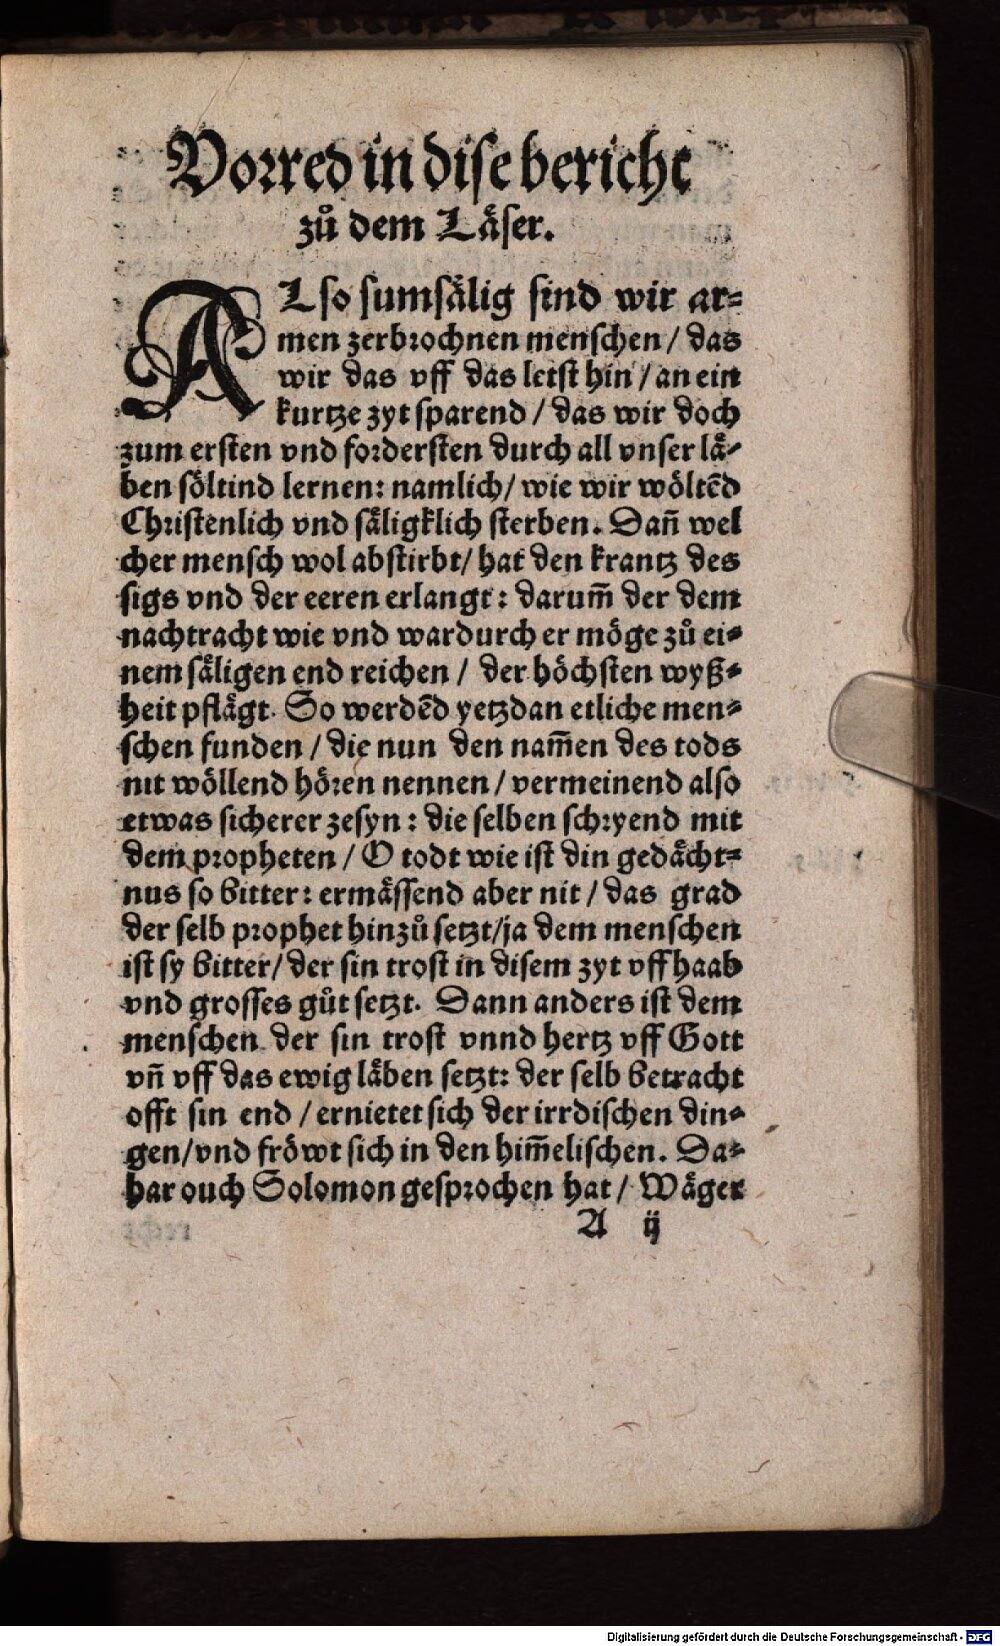 Vorred in dise bericht
zů dem Läser.
ALso sumsälig sind wir ar=
men zerbrochnen menschen / das
wir das vff das letst hin / an ein
kurtze zyt sparend / das wir doch
zum ersten vnd fordersten durch all vnser lä=
ben söltind lernen: namlich / wie wir wöltẽd
Christenlich vnd säligklich sterben. Dañ wel
cher mensch wol abstirbt / hat den krantz des
sigs vnd der eeren erlangt: darum̃ der dem
nachtracht wie vnd wardurch er möge zů ei=
nem säligen end reichen / der höchsten wyß=
heit pflägt. So werdẽd yetzdan etliche men=
schen funden / die nun den nam̃en des tods
nit wöllend hören nennen / vermeinend also
etwas sicherer zesyn: die selben schryend mit
dem propheten / O todt wie ist din gedächt=
nus so bitter: ermässend aber nit / das grad
der selb prophet hinzů setzt / ja dem menschen
ist sy bitter / der sin trost in disem zyt vff haab
vnd grosses gůt setzt. Dann anders ist dem
menschen der sin trost vnnd hertz vff Gott
vñ vff das ewig läben setzt: der selb betracht
offt sin end / ernietet sich der irrdischen din=
gen / vnd fröwt sich in den him̃elischen. Da=
har ouch Solomon gesprochen hat / Wäger
A ij
Digitalisierung gefördert durch die Deutsche Forschungsgemeinschaft - DFG